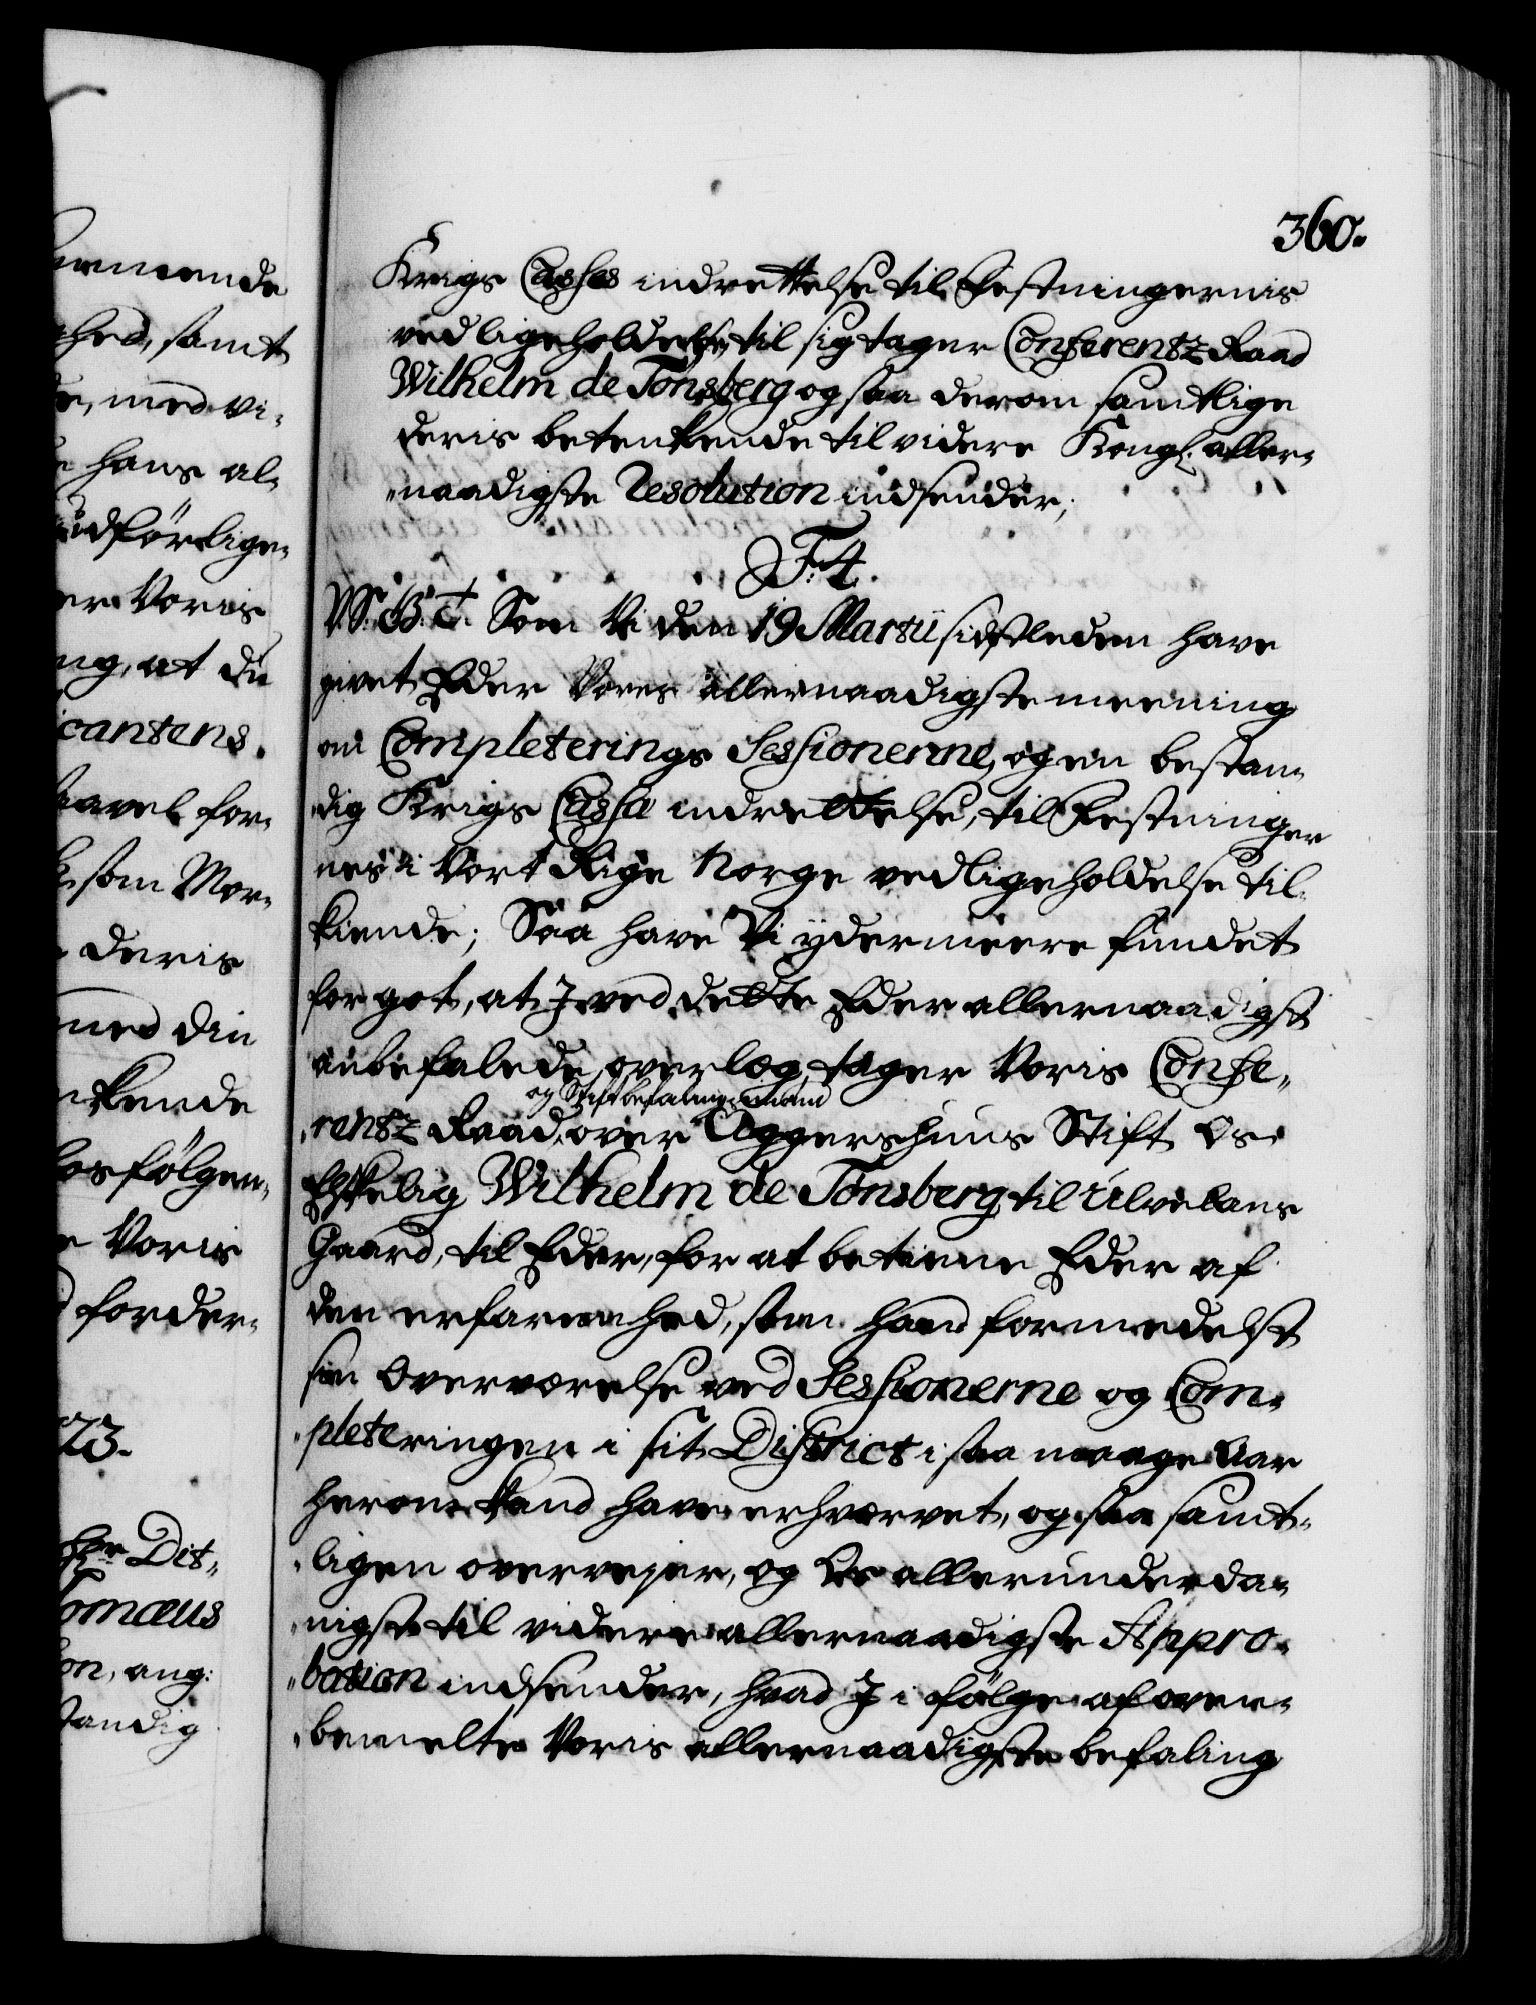 360.
Krigs Casses indrettelse til Festningernis
vedligeholdelse, til sig tager Conferentz Raad
Wilhelm de Tonsberg og saa derom samtlige
deris betenkende til videre Kongl. aller-
naadigste Resolution indsender;
F. 4.
V. S. G. T. Som Vi den 19 Martii sidstleden have
givet Eder Vores allernaadigste meening
om Completerings Sessionerne, og en bestan-
dig Krigs Cassa indrettelse, til Festninger
nes i Vort Rige Norge vedligeholdelse til-
kiende; Saa have Vi ydermeere fundet
for got, at I ved dette Eder allernaadigst
anbefalede overlæg tager Voris Confe-
og Stiftbefalingsmand
rentz Raad, over Aggershuus Stift Os
Elskelig Wilhelm de Tonsberg til Ulvelans
Gaard, til Eder, for at betiene Eder af
den erfarenhed, som hand formedelst
sin Overværelse ved Sessionerne og Com-
pleteringen i sit District i saa mange Aar
herom kand have erhværvet, og saa samt-
ligen overvejer, og Os allerunderda-
nigst til videre allernaadigste Appro-
bation indsender, hvad I i følge af oven-
bemelte Voris allernaadigste befaling
ermeende
hed, samt
de, med vi-
hans al-
udförlige-
er Voris
ng, at du
icantens.
for-
som Mor-
deris
med din
nkende
os følgen-
Voris
forder-
23.
Hr Dit-
omæus
on, ang:
tandig